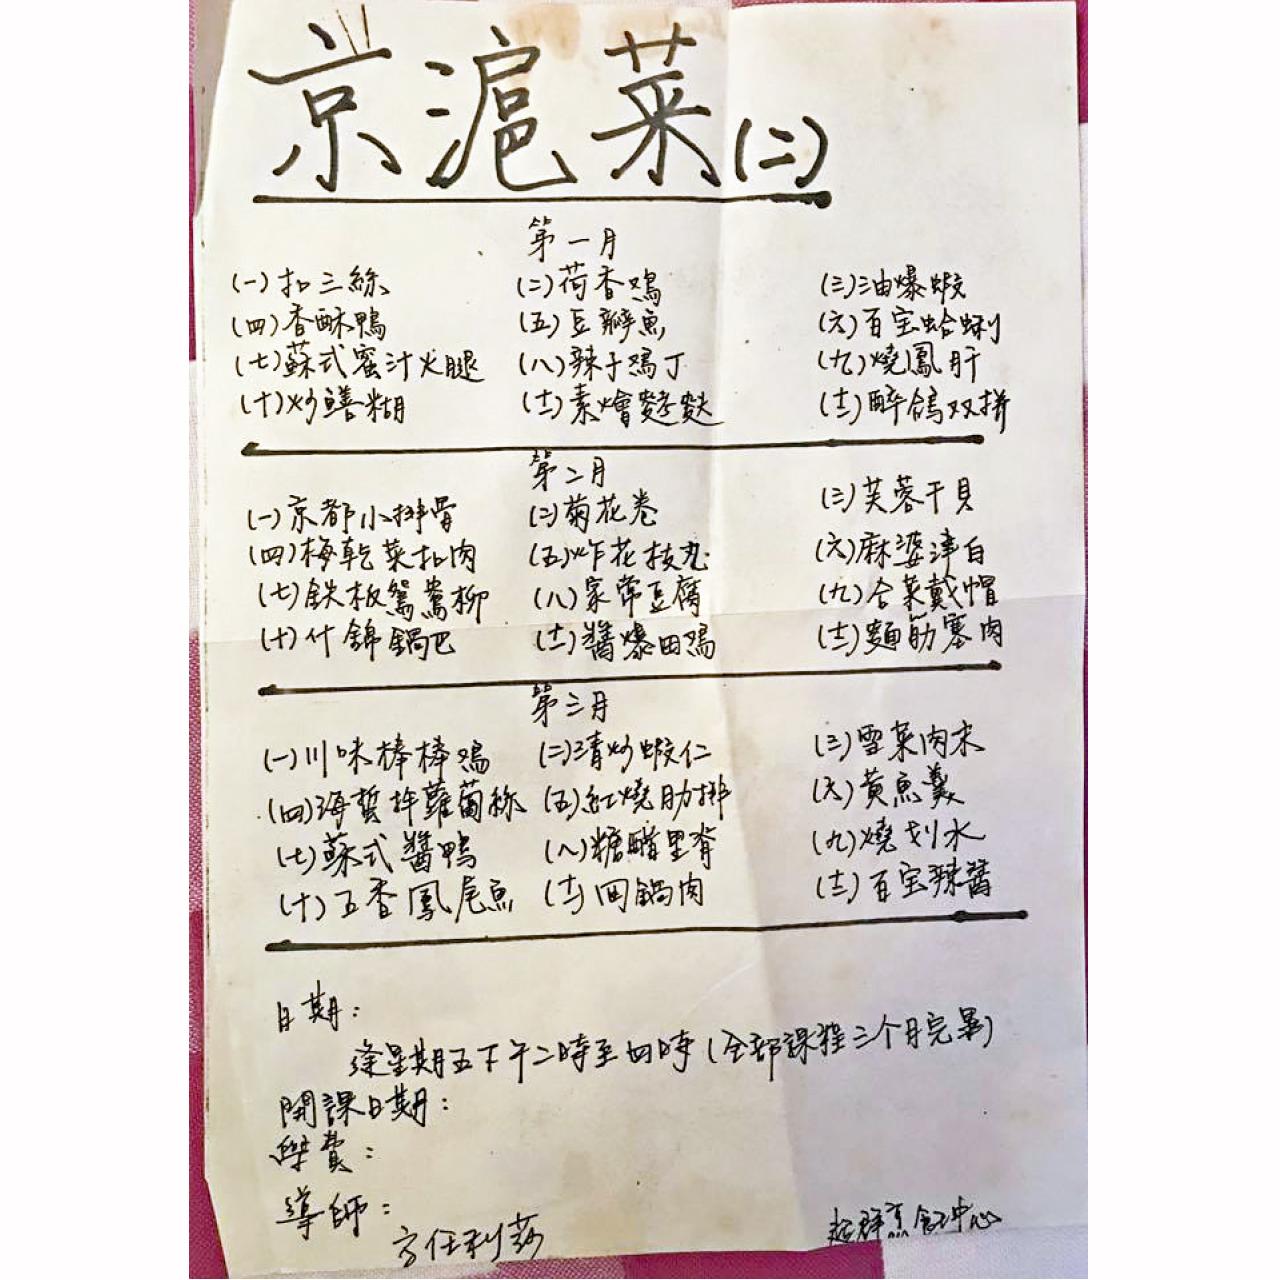 京滬菜(二)
第一月
(一)扣三絲 (二)荷香鸡 (三)油爆蝦
(四)香酥鴨 (五)豆瓣魚 (六)百宝蛤蜊
(七)蘇式蜜汁火腿 (八)辣子鸡丁 (九)燒鳳肝
(十)炒鱔糊 (十一)素燴麩 (十二)醉鴿双拼
第二月
(一)京都小排骨 (二)菊花卷 (三)芙蓉干貝
(四)梅乾菜扣肉 (五)炸花枝丸 (六)麻婆津白
(七)鉄板鴛鴦柳 (八)家常豆腐 (九)合菜戴帽
(十)什錦鍋巴 (十一)醬爆田鸡 (十二)麵筋塞肉
第三月
(一)川味棒棒鸡 (二)清炒蝦仁 (三)雪菜肉末
(四)海蜇拌蘿蔔絲 (五)紅燒肋排 (六)黄魚羹
(七)蘇式醬鴨 (八)糖醋里脊 (九)燒划水
(十)五香鳳尾魚 (十一)回鍋肉 (十二)百宝辣醬
日期:
逢星期五下午二時至四時(全部課程三个月完畢)
開課日期:
學費:
導師:
方任利莎
超群烹飪中心